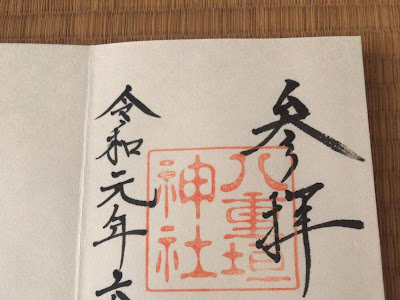 参拝
八重垣
神社
令和元年六